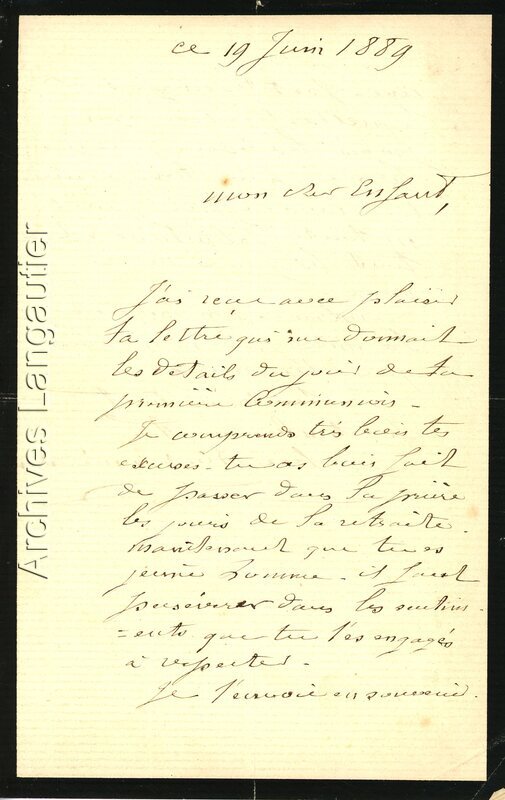 ce 19 Juin 1889
mon cher Enfant,
J'ai reçu avec plaisir
ta lettre qui me donnait
les détails du jour de ta
première Communion.
Je comprends très bien tes
excuses. tu as bien fait
de passer dans la prière
les jours de la retraite.
maintenant que tu es
jeune homme. il faut
persévérer dans les sentim-
=ents que tu t'es engagés
à respecter.
Je t'envoie en souvenir.
Archives Langautier